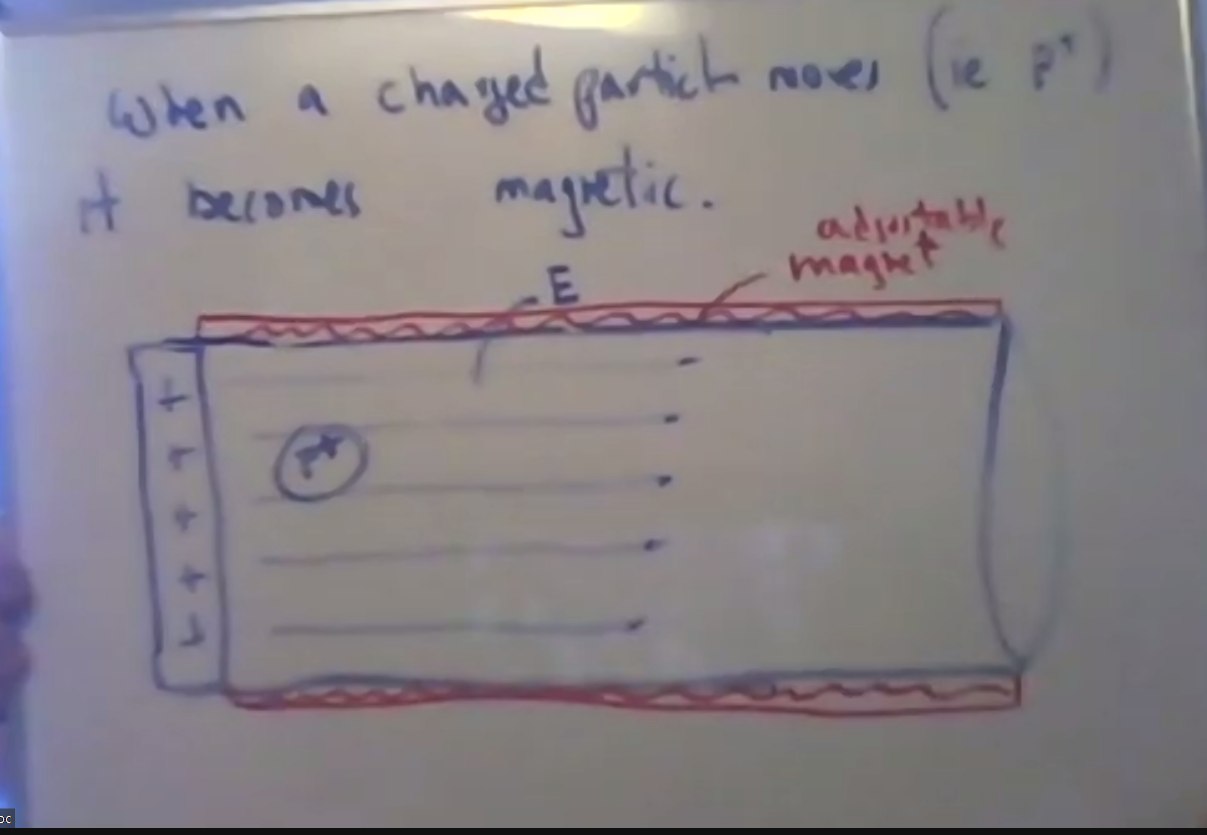 When a charged particle moves (ie P⁺)
it becomes magnetic.
adjustable
magnet
E
+
+
P⁺
+
+
+